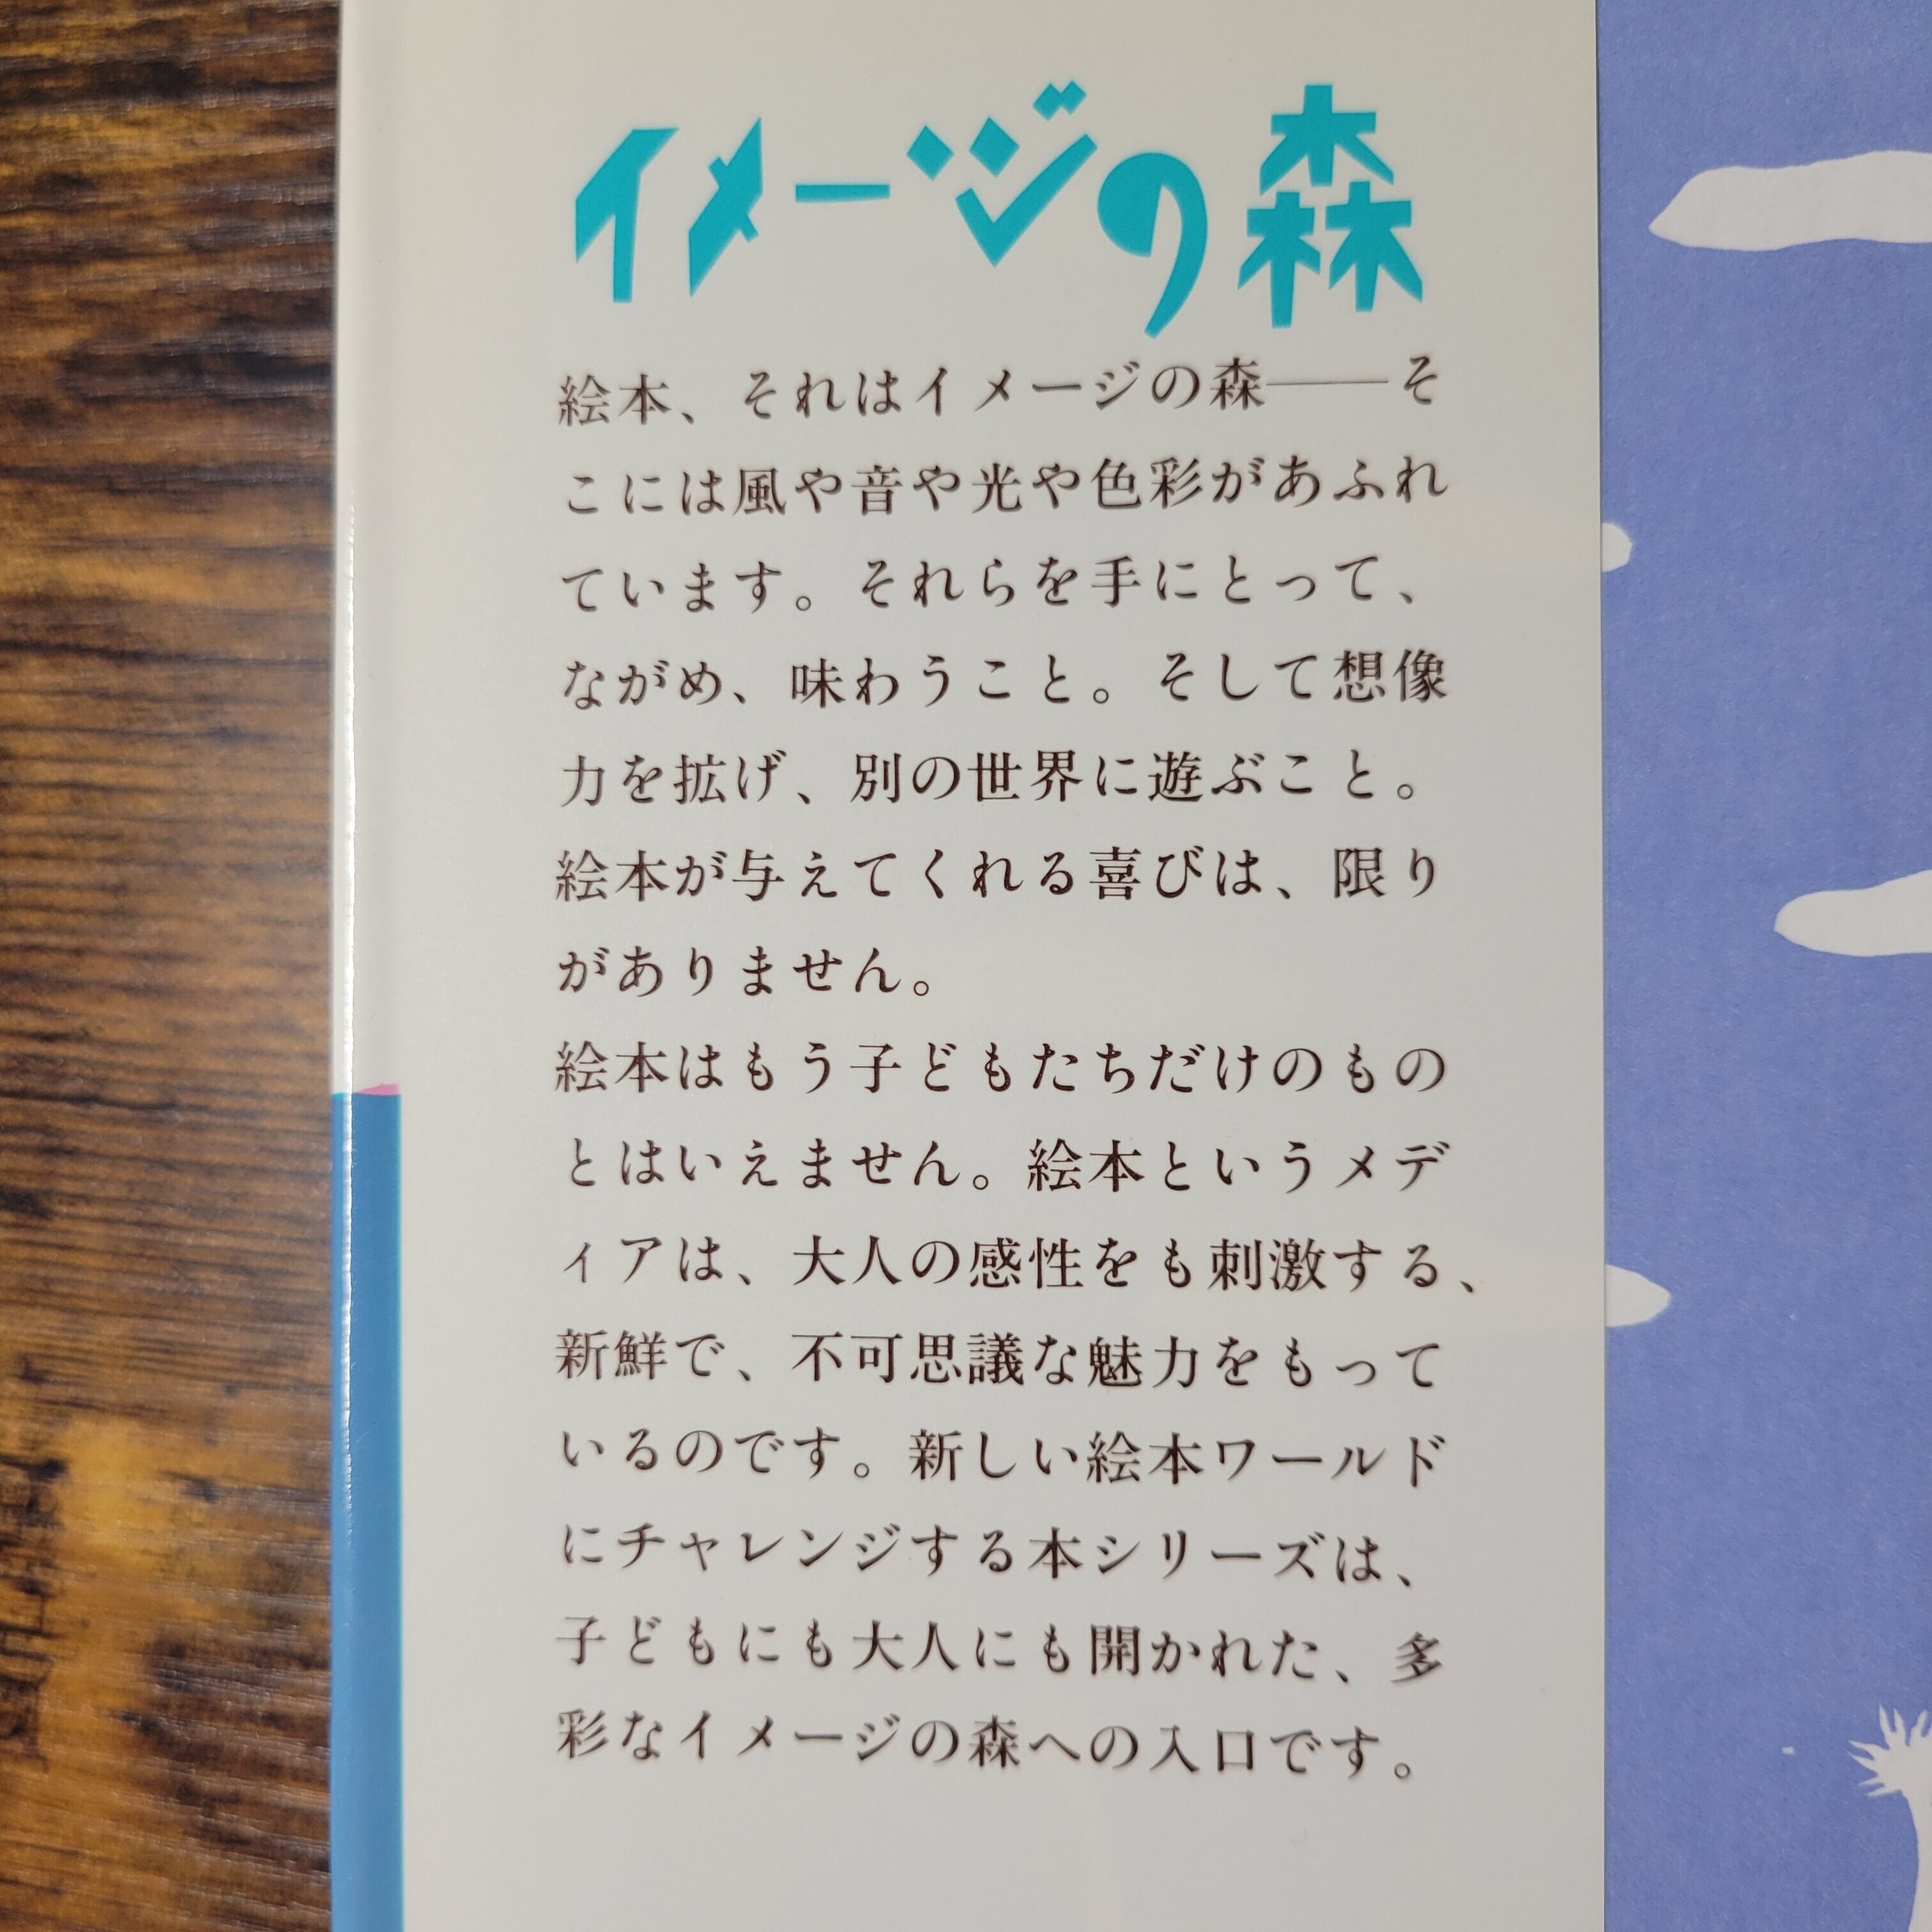 イメージの森
絵本、それはイメージの森――そ
こには風や音や光や色彩があふれ
ています。それらを手にとって、
ながめ、味わうこと。そして想像
力を拡げ、別の世界に遊ぶこと。
絵本が与えてくれる喜びは、限り
がありません。
絵本はもう子どもたちだけのもの
とはいえません。絵本というメデ
ィアは、大人の感性をも刺激する、
新鮮で、不可思議な魅力をもって
いるのです。新しい絵本ワールド
にチャレンジする本シリーズは、
子どもにも大人にも開かれた、多
彩なイメージの森への入口です。